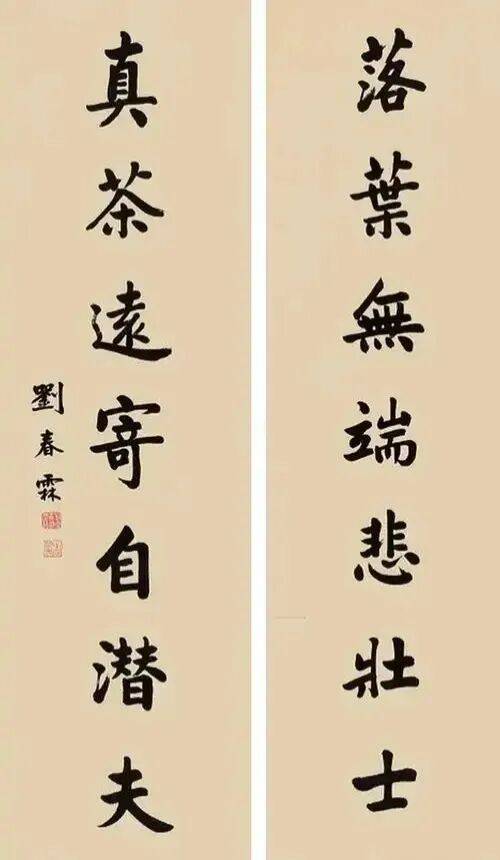 落葉無端悲壯士
真茶遠寄自潜夫
劉春霖